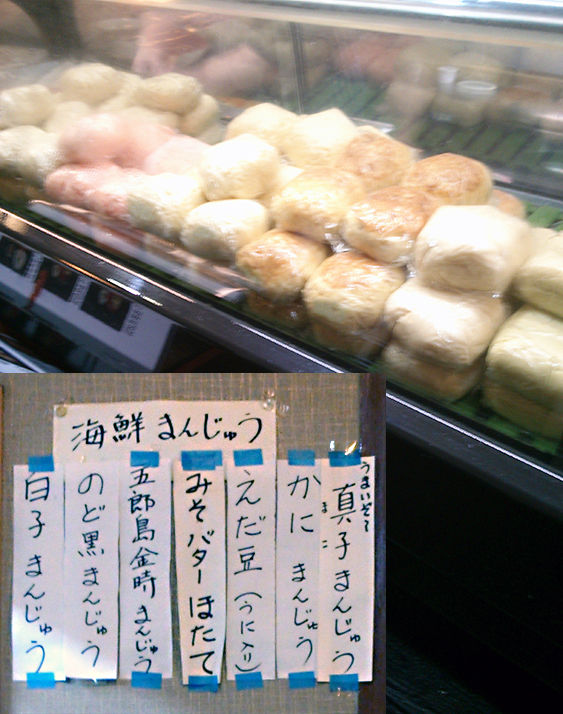 海鮮まんじゅう
うまいぞ〜
真子まんじゅう
まこ
かにまんじゅう
えだ豆(うに入り)
みそバターほたて
五郎島金時まんじゅう
のど黒まんじゅう
白子まんじゅう